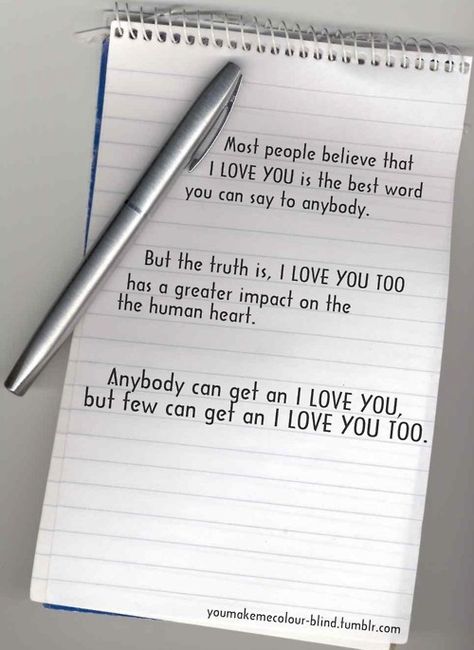 Most people believe that
I LOVE YOU is the best word
you can say to anybody.
But the truth is, I LOVE YOU TOO
has a greater impact on the
the human heart.
Anybody can get an I LOVE YOU,
but few can get an I LOVE YOU TOO.
youmakemecolour-blind.tumblr.com